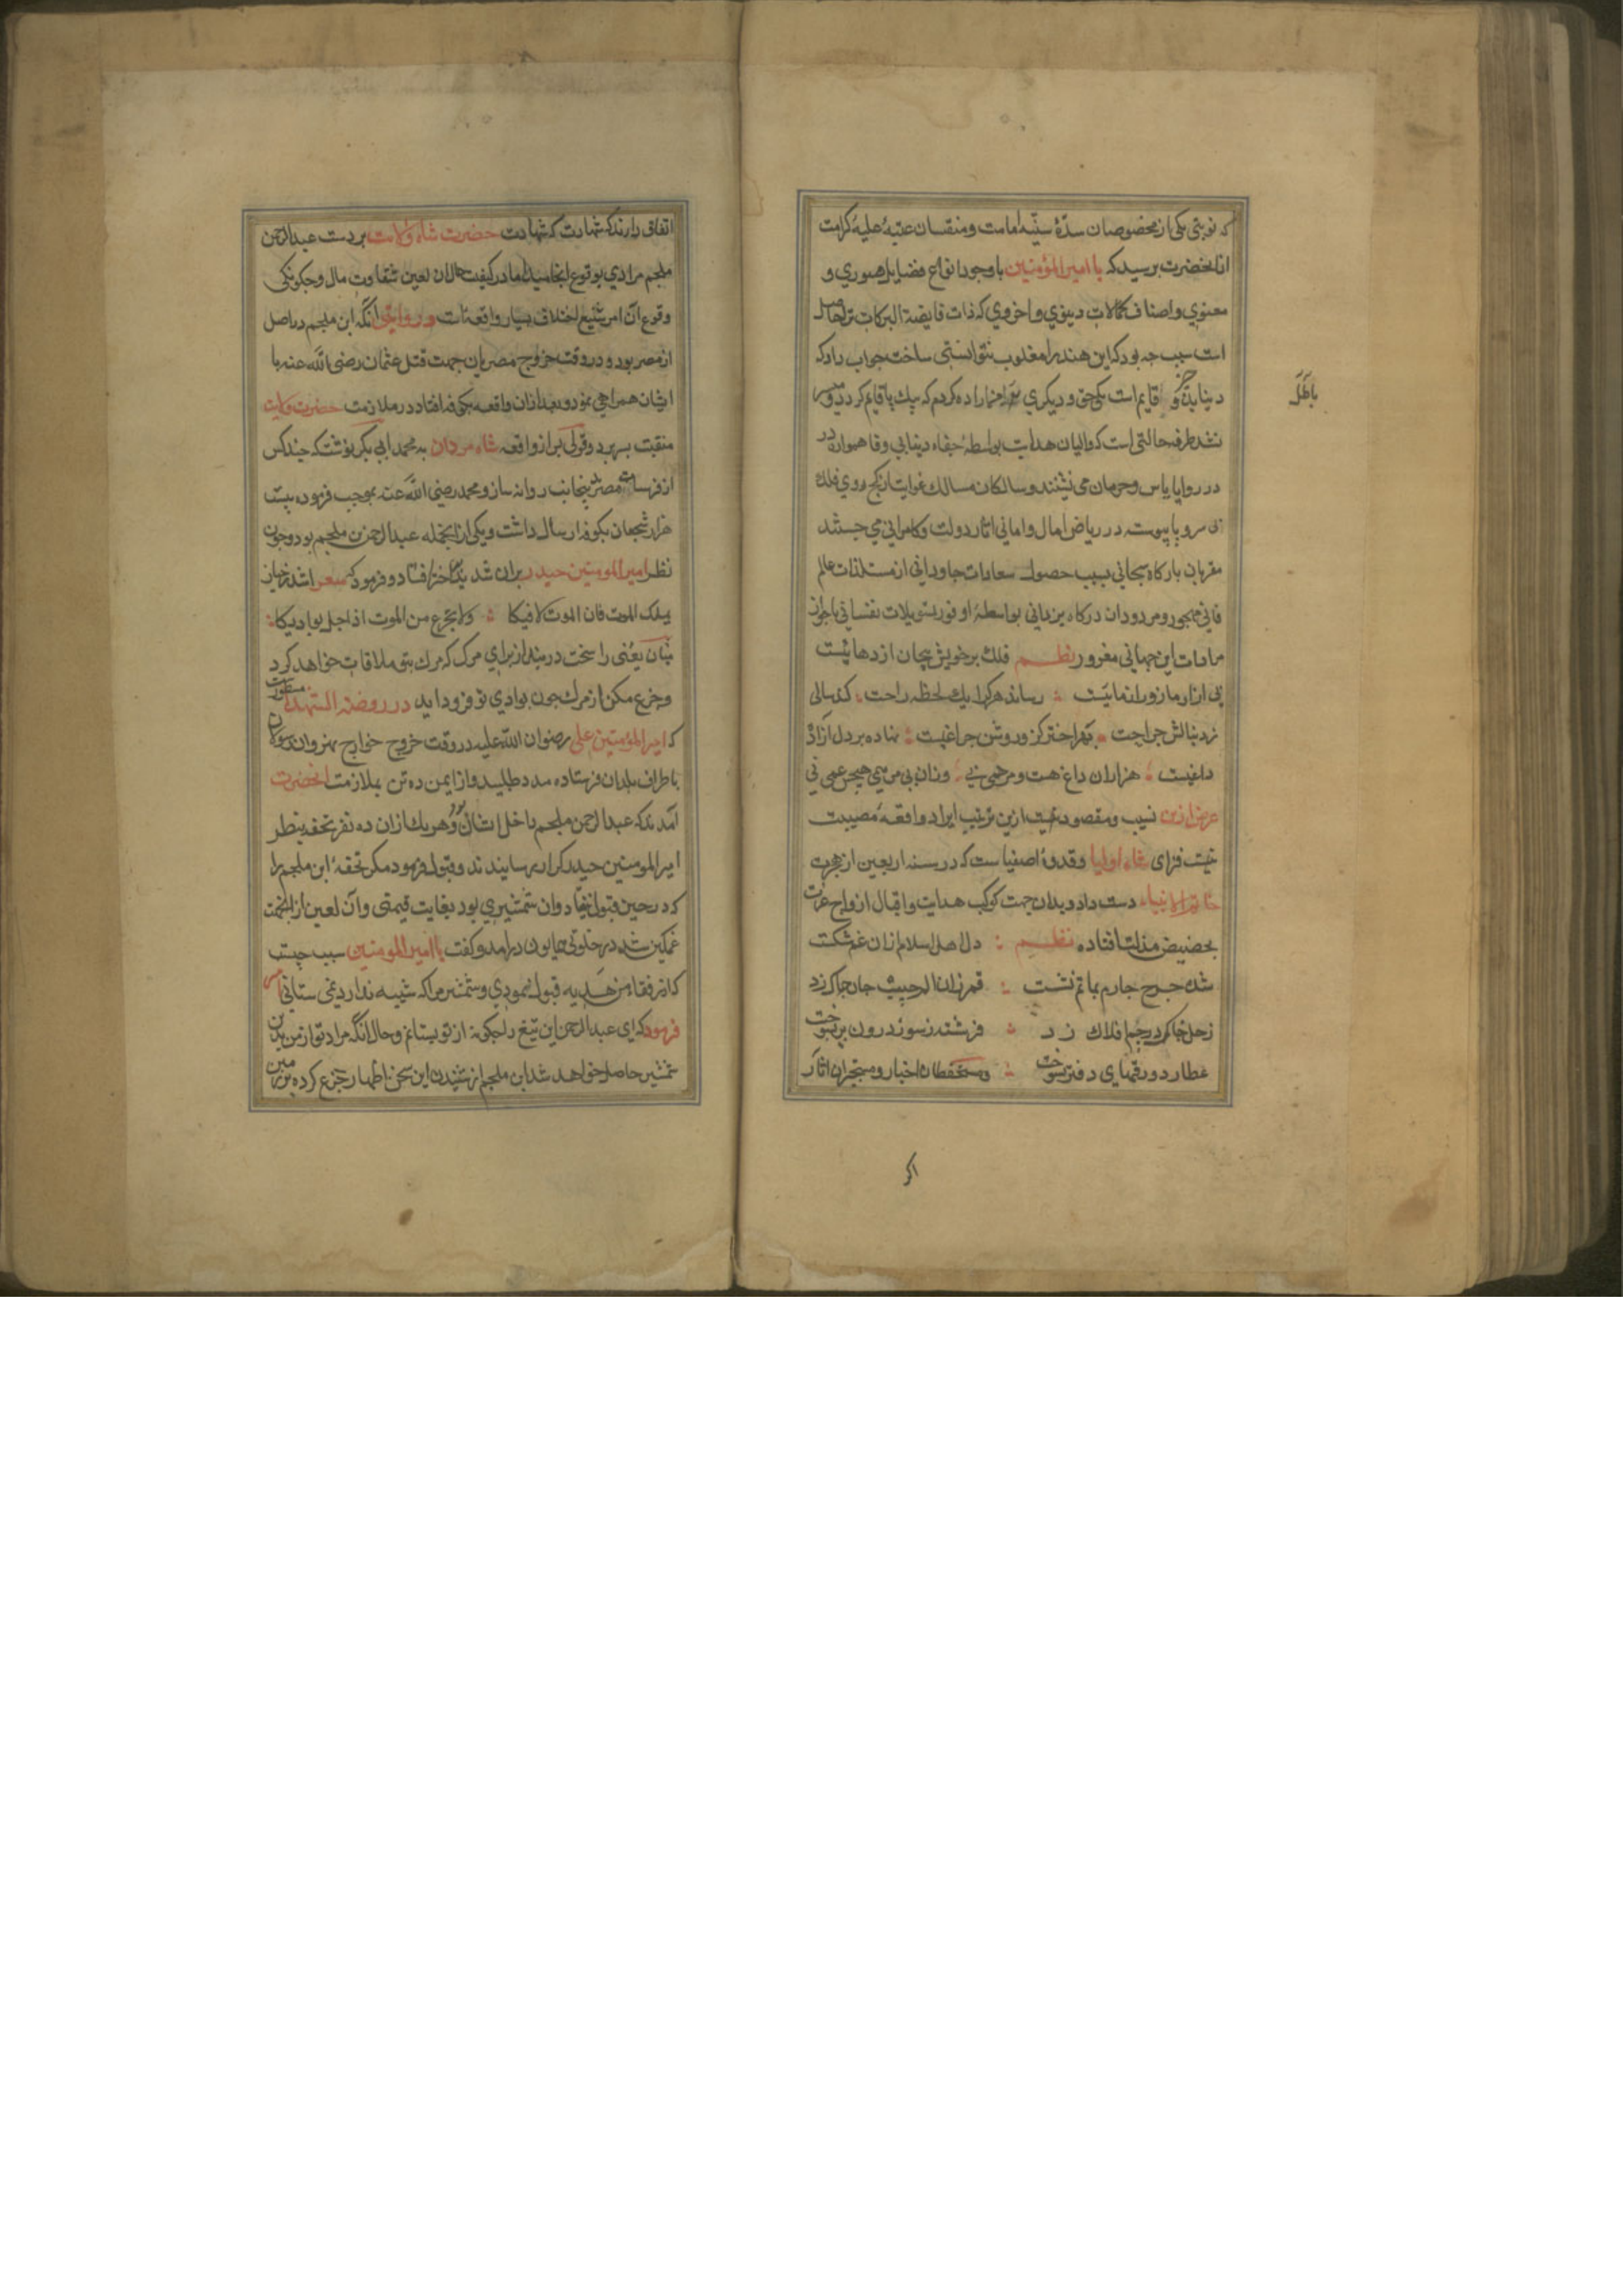 که نوبتی یکی از مخصوصان سدّهٔ سنیهٔ امامت و منتسبان عتبهٔ علیهٔ کرامت
از انحضرت پرسید که یا امیر المؤمنین با وجود انواع فضایل صوری و
معنوی و اصناف کمالات دینوی و اخروی که ذات فایضة البرکات ترا حاصل
است سبب چه بود که ابن هند را مغلوب نتوانستی ساخت جواب داد که
قایم است یکی حق و دیگری که بیک پا قایم کردد
باطل
نشد طرفه حالتی است که والیان هدایت بواسطهٔ جفاء
در زوایا یاس و حرمان می نشینند و سالکان مسالک غوایت از کج روی فلک
بی سر و پا پیوسته در ریاض امال و امانی اثار دولت و کامرانی می جستند
مقربان بارکاه سبحانی بسبب حصول سعادات جاودانی از مستلذات عالم
فانی مهجور و مردودان درکاه یزدانی بواسطهٔ نفسانی
مادات این جهانی مغرور نظم فلک بر خویش پیچان اژدهائیست
پی ازار ما زورازمائیست رساند هرکرا یک لحظه راحت کند سالی
ز دنبالش جراحت بهر اختر کزو روشن چراغیست نهاده بر دل آزاده
داغیست هزاران داغ هست و مرهمی نی
غرض ازین نسیب و مقصود ازین ترتیب ایراد واقعهٔ مصیبت
فزای شاه اولیا و قدوهٔ اصفیاست که در سنه اربعین از هجرت
خاتم الانبیاء دست داد و بدان جهت کوکب هدایت و اقبال از اوج عزت
بحضیض مذلت افتاده نظم دل اهل اسلام ازان غم شکست
شه چرخ چارم بماتم نشست قمر زان الم جیب جان چاک زد
زحل خاک بر فلاک زد فرشته ز سوز درون پر بسوخت
عطارد ورقهای دفتر بسوخت و مستحفظان اخبار و مستخبران اثار
اکر
اتفاق دارند که شهادت حضرت شاه ولایت بر دست عبد الرحمن
ملجم مرادی بوقوع انجامید اما در کیفیت حال ان لعین شقاوت مال و چکونکی
وقوع آن امر شنیع اختلاف بسیار واقعست و روایتی انکه ابن ملجم در اصل
از مصر بود و در وقت خروج مصریان جهت قتل عثمان رضی الله عنه با
ایشان همراهی نمود و بعد ازان واقعه بکوفه افتاد در ملازمت حضرت ولایت
منقبت بسر برد و قولی شاه مردان به محمد ابی بکر نوشت که چند کس
از فرسان مصر بدینجانب روانه ساز و محمد رضی الله عنه بموجب فرموده بیست
هزار شجعان بکوفه ارسال داشت و یکی از انجمله عبد الرحمن بن ملجم بود و چون
نظر امیر المومنین حیدر بران افتاد و فرمود که شعر اشدد حیازیمک
للموت فان الموت لاقیکا ولا تجزع من الموت اذا حل بوادیکا
یعنی را سخت در بند از برای مرک که مرک بتو ملاقات خواهد کرد
و جزع مکن از مرک چون بوادی تو فرود اید در روضة الشهدا مسطورست
که امیر المؤمنین علی رضوان الله علیه در وقت خروج خوارج نهروان رسولان
باطراف بلدان فرستاده مدد طلبید و از یمن ده تن بملازمت انحضرت
آمدند که عبد الرحمن ملجم داخل ایشان بود و هر یک ازان ده نفر تحفه بنظر
امیر المومنین حیدر کرار رسانیدند و قبول فرمود مکر تحفهٔ ابن ملجم را
که در حین قبول نیفتاد و ان شمشیری بود بغایت قیمتی و آن لعین از انجهت
غمکین شده در خلوتی همایون درامد و کفت یا امیر المومنین سبب چیست
که از رفقاء من هدیه قبول نمودی و شمشیر مرا که شبیه ندارد نمی ستانی امیر
فرمود که ای عبد الرحمن این تیغ را چکونه از تو بستانم و حال انکه مراد تو از من بدین
شمشیر حاصل خواهد شد ابن ملجم از شنیدن این سخن اظهار جزع کرده بر زمین